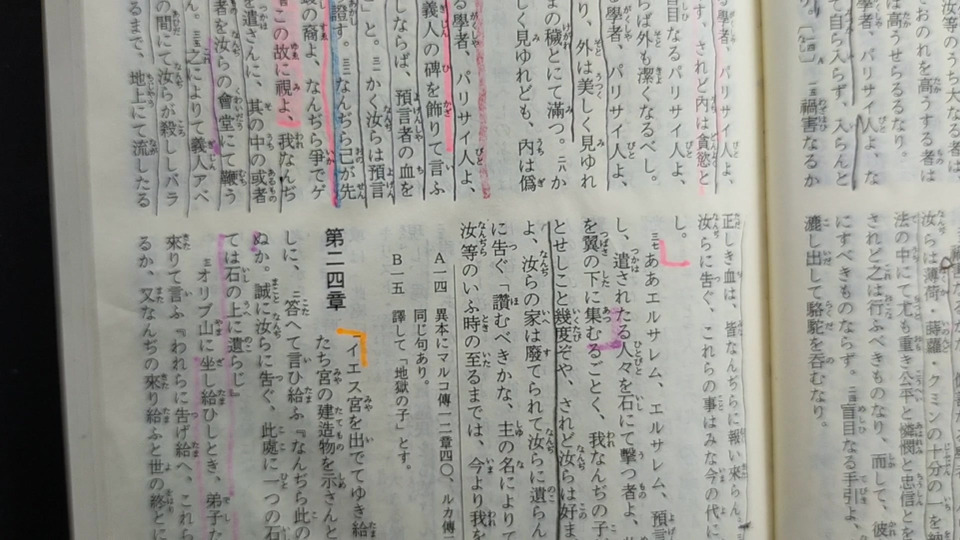 汝等のうち大なる者は
ておのれを高うする者は
は高うせらるるなり。
學者、パリサイ人よ、な
て自ら入らず、入らんと
禍害なるか
汝らは薄荷・蒔蘿・クミンの十分の一を納
法の中にて尤も重き公平と憐憫と忠信とを
されど之は行ふべきものなり、而して、彼
にすべきものならず。二四 盲目なる手引よ、
漉し出して駱駝を呑むなり。
る學者、パリサイ人よ、
す、されど内は貪慾と
盲目なるパリサイ人よ、
らば外も潔くなるべし。
る學者、パリサイ人よ、
り、外は美しく見ゆれ
まの穢とにて滿つ。二八 か
しく見ゆれども、内は僞
る學者、パリサイ人よ、
義人の碑を飾りて言ふ
しならば、預言者の血を
」と。三一 かく汝らは預言
證す。三二 なんぢら己が先
の裔よ、なんぢら爭でゲ
この故に視よ、我なんぢ
を遣さんに、其の中の或者
者を汝らの會堂にて鞭う
ん。三五 之によりて義人アベ
の間にて汝らが殺ししバラ
地上にて流したる
正しき血は、皆なんぢらに報い來らん。
汝らに告ぐ、これらの事はみな今の代に
し。
三七 ああエルサレム、エルサレム、預言
し、遣されたる人々を石にて擊つ者よ、
を翼の下に集むるごとく、我なんぢの子
とせしこと幾度ぞや、されど汝らは好ま
よ、汝らの家は廢てられて汝らに遺らん
に告ぐ「讚むべきかな、主の名によりて
汝等のいふ時の至るまでは、今より我を
A 一四 異本にマルコ傳一二章四〇、ルカ傳
同じ句あり。
B 一五 譯して「地獄の子」とす。
第二四章
一 イエス宮を出でてゆき給
たち宮の建造物を示さんと
しに、二 答へて言ひ給ふ『なんぢら此の
ぬか。誠に汝らに告ぐ、此處に一つの石
ては石の上に遺らじ』
三 オリブ山に坐し給ひしとき、弟子た
來りて言ふ『われらに告げ給へ、これら
るか、又なんぢの來り給ふと世の終とに